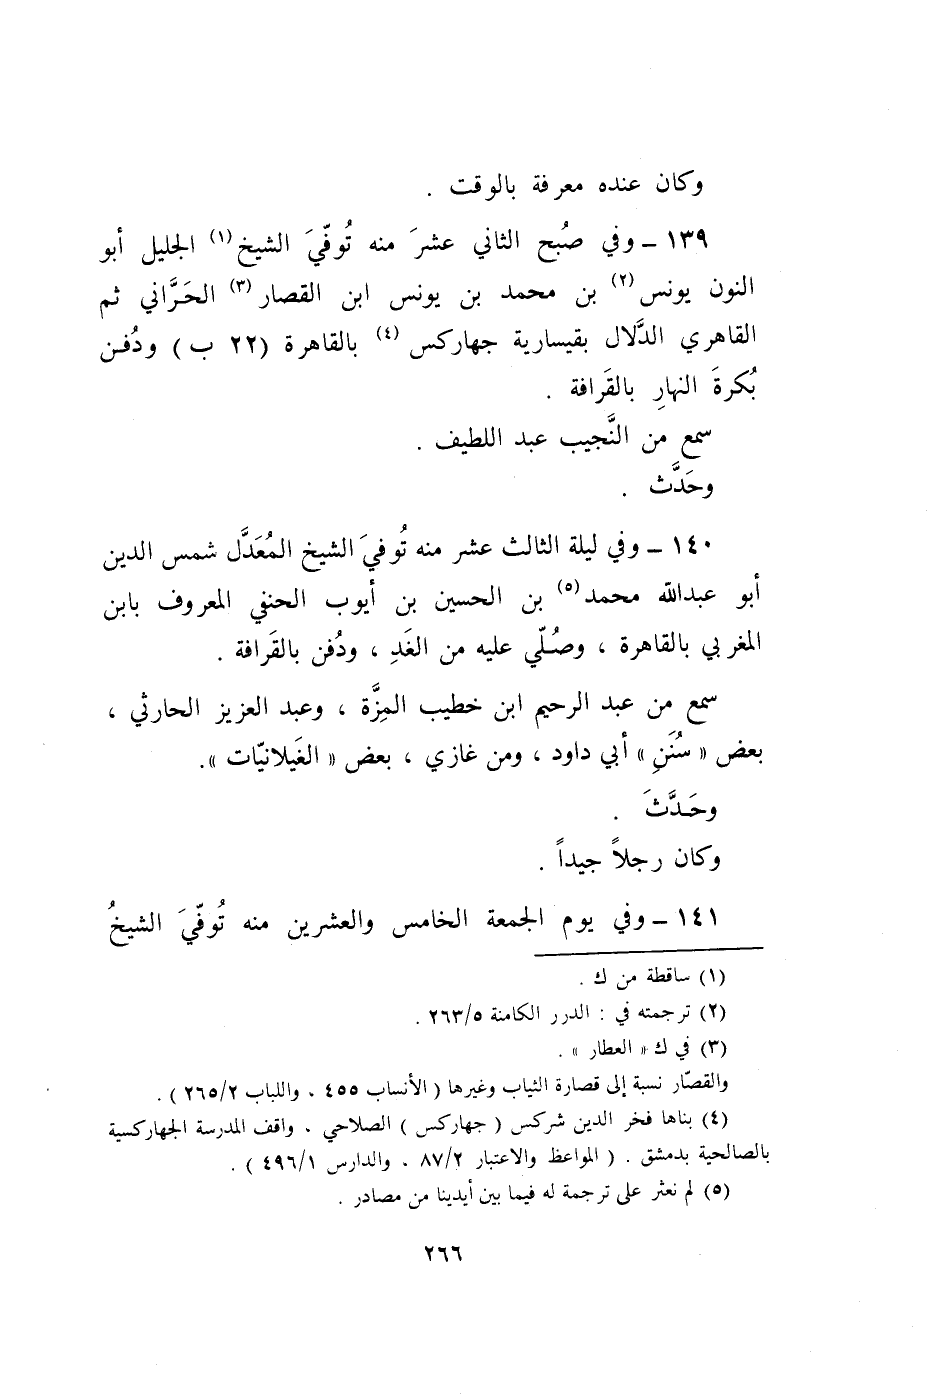 وكان عنده معرفة بالوقت .
١٣٩ – وفي صُبح الثاني عشرَ منه تُوفّيَ الشيخ(١) الجليل أبو
النون يونس(٢) بن محمد بن يونس ابن القصار(٣) الحَرَّاني ثم
القاهري الدَّلال بقيسارية جهاركس(٤) بالقاهرة (٢٢ ب) ودُفن
بُكرةَ النهارِ بالقَرافة .
سمع من النَّجيب عبد اللطيف .
وحَدَّث .
١٤٠ – وفي ليلة الثالث عشر منه تُوفيَ الشيخ المُعَدَّل شمس الدين
أبو عبدالله محمد(٥) بن الحسين بن أيوب الحنفي المعروف بابن
المغربي بالقاهرة ، وصُلّي عليه من الغَدِ ، ودُفن بالقَرافة .
سمع من عبد الرحيم ابن خطيب المِزَّة ، وعبد العزيز الحارثي ،
بعض « سُنَنِ » أبي داود ، ومن غازي ، بعض « الغَيلانيّات ».
وحَدَّثَ .
وكان رجلاً جيداً .
١٤١ – وفي يوم الجمعة الخامس والعشرين منه تُوفّيَ الشيخُ
(١) ساقطة من ك .
(٢) ترجمته في : الدرر الكامنة ٢٦٣/٥ .
(٣) في ك « العطار » .
والقصّار نسبة إلى قصارة الثياب وغيرها ( الأنساب ٤٥٥ ، واللباب ٢٦٥/٢ ) .
(٤) بناها فخر الدين شركس ( جهاركس ) الصلاحي ، واقف المدرسة الجهاركسية
بالصالحية بدمشق . ( المواعظ والاعتبار ٨٧/٢ ، والدارس ٤٩٦/١ ) .
(٥) لم نعثر على ترجمة له فيما بين أيدينا من مصادر .
٢٦٦